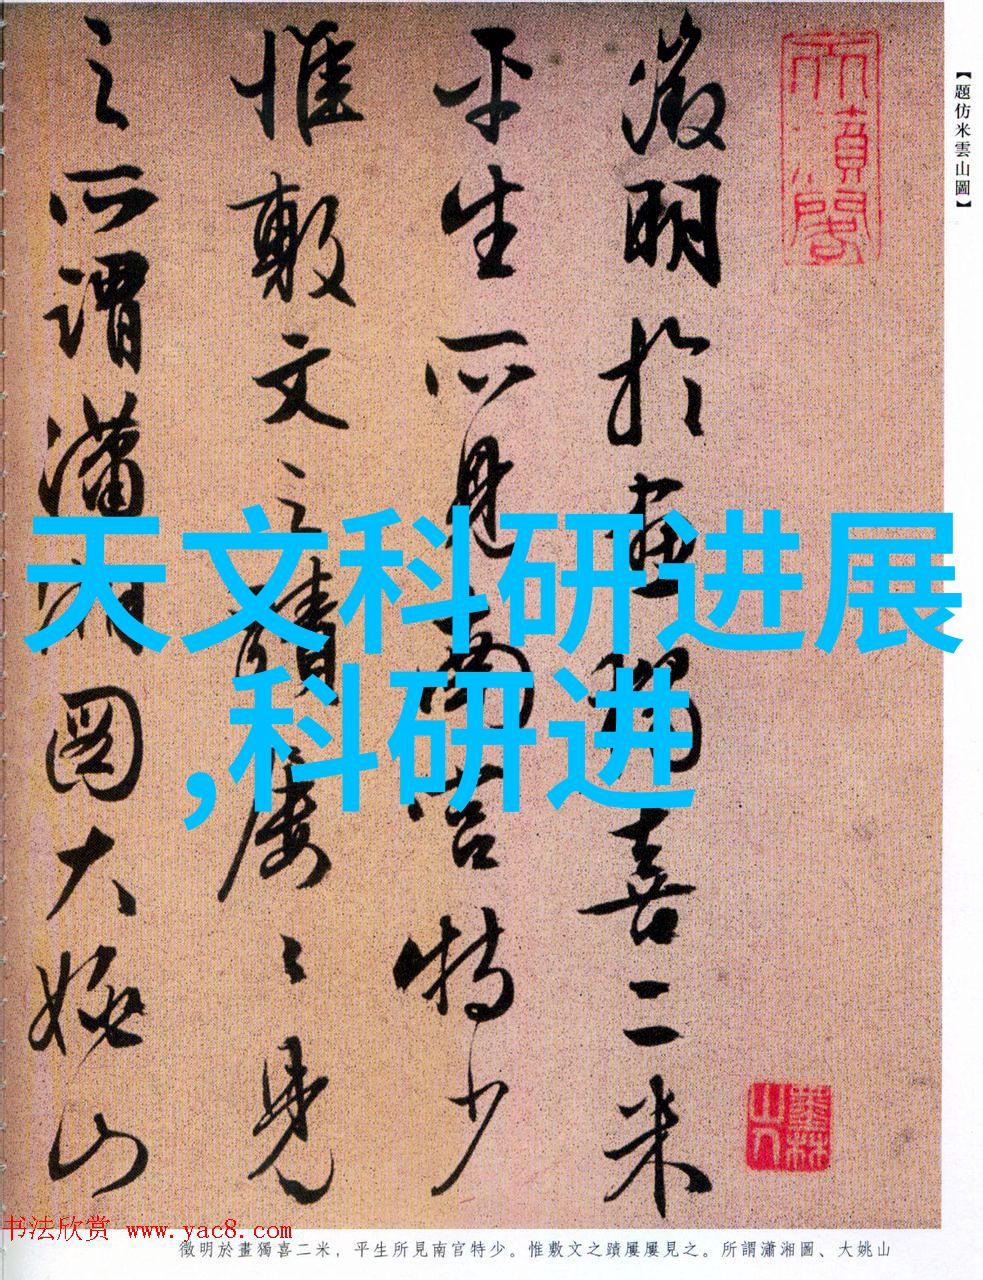 【題仿米雲山圖】
徵明於畫獨喜二米
平生所見南宮特少
惟敷文之蹟屢〻見
之所謂瀟湘圖大姚山
墨林山人
天文科研进展
,科研进
书法欣赏 www.yac8.com
徵明於畫獨喜二米，平生所見南官特少。惟敷文之蹟屢屢見之。所謂瀟湘圖、大姚山